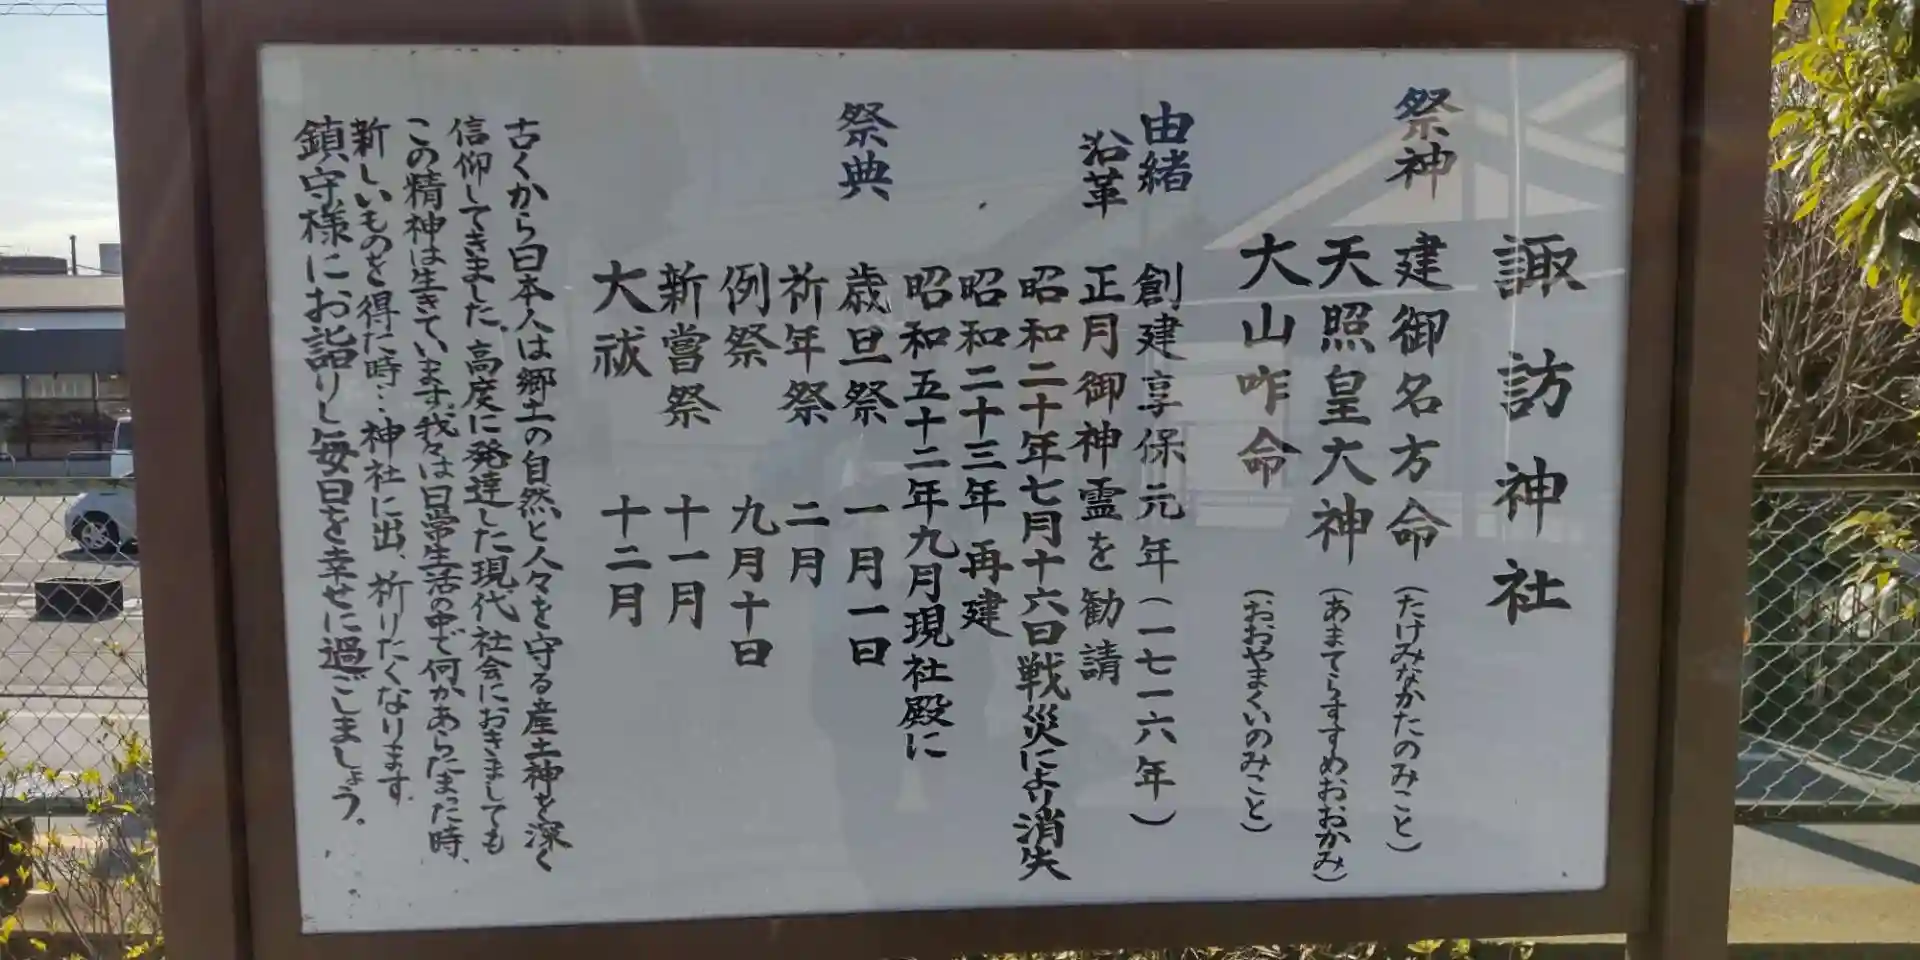 諏訪神社
祭神
建御名方命（たけみなかたのみこと）
天照皇大神（あまてらすすめおおかみ）
大山咋命（おおやまくいのみこと）
由緒
沿革
創建享保元年（一七一六年）
正月御神霊を勧請
昭和二十年七月十六日戦災により消失
昭和二十三年再建
昭和五十二年九月現社殿に
祭典
歳旦祭 一月一日
祈年祭 二月
例祭 九月十日
新嘗祭 十一月
大祓 十二月
古くから日本人は郷土の自然と人々を守る産土神を深く
信仰してきました。高度に発達した現代社会におきましても
この精神は生きています。我々は日常生活の中で何かあらたまた時、
新しいものを得た時…神社に出、祈りたくなります。
鎮守様にお詣りし毎日を幸せに過ごしましょう。